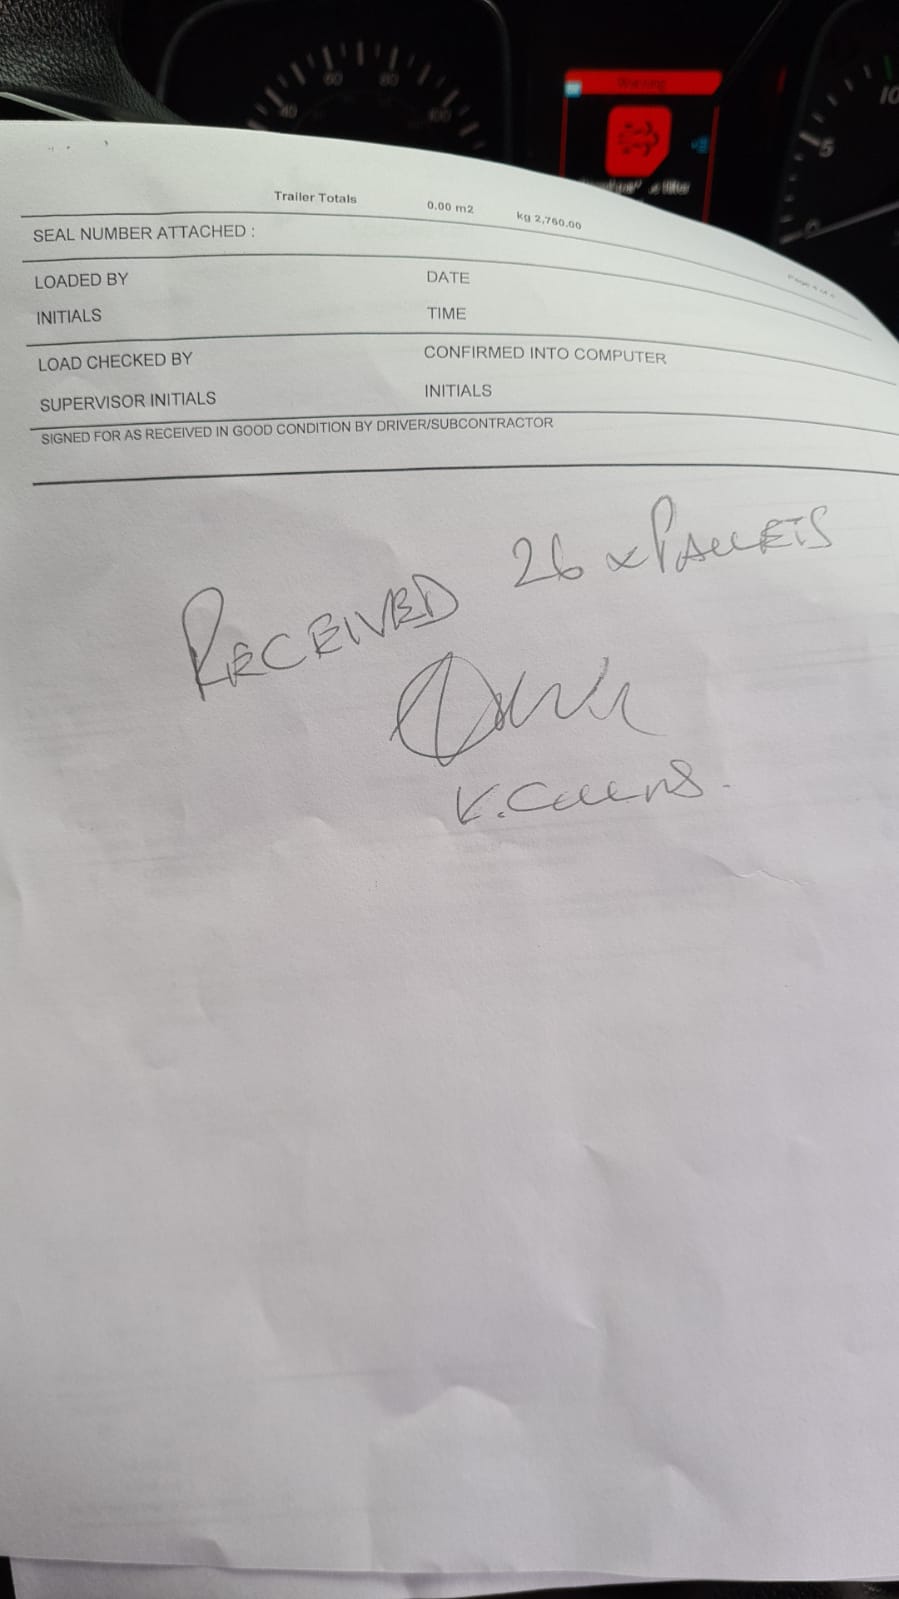 40
60
80
100
Warning
5
10
0
Trailer Totals 0.00 m2 kg 2,760.00
SEAL NUMBER ATTACHED :
LOADED BY DATE
INITIALS TIME
LOAD CHECKED BY CONFIRMED INTO COMPUTER
SUPERVISOR INITIALS INITIALS
SIGNED FOR AS RECEIVED IN GOOD CONDITION BY DRIVER/SUBCONTRACTOR
RECEIVED 26 x PALLETS